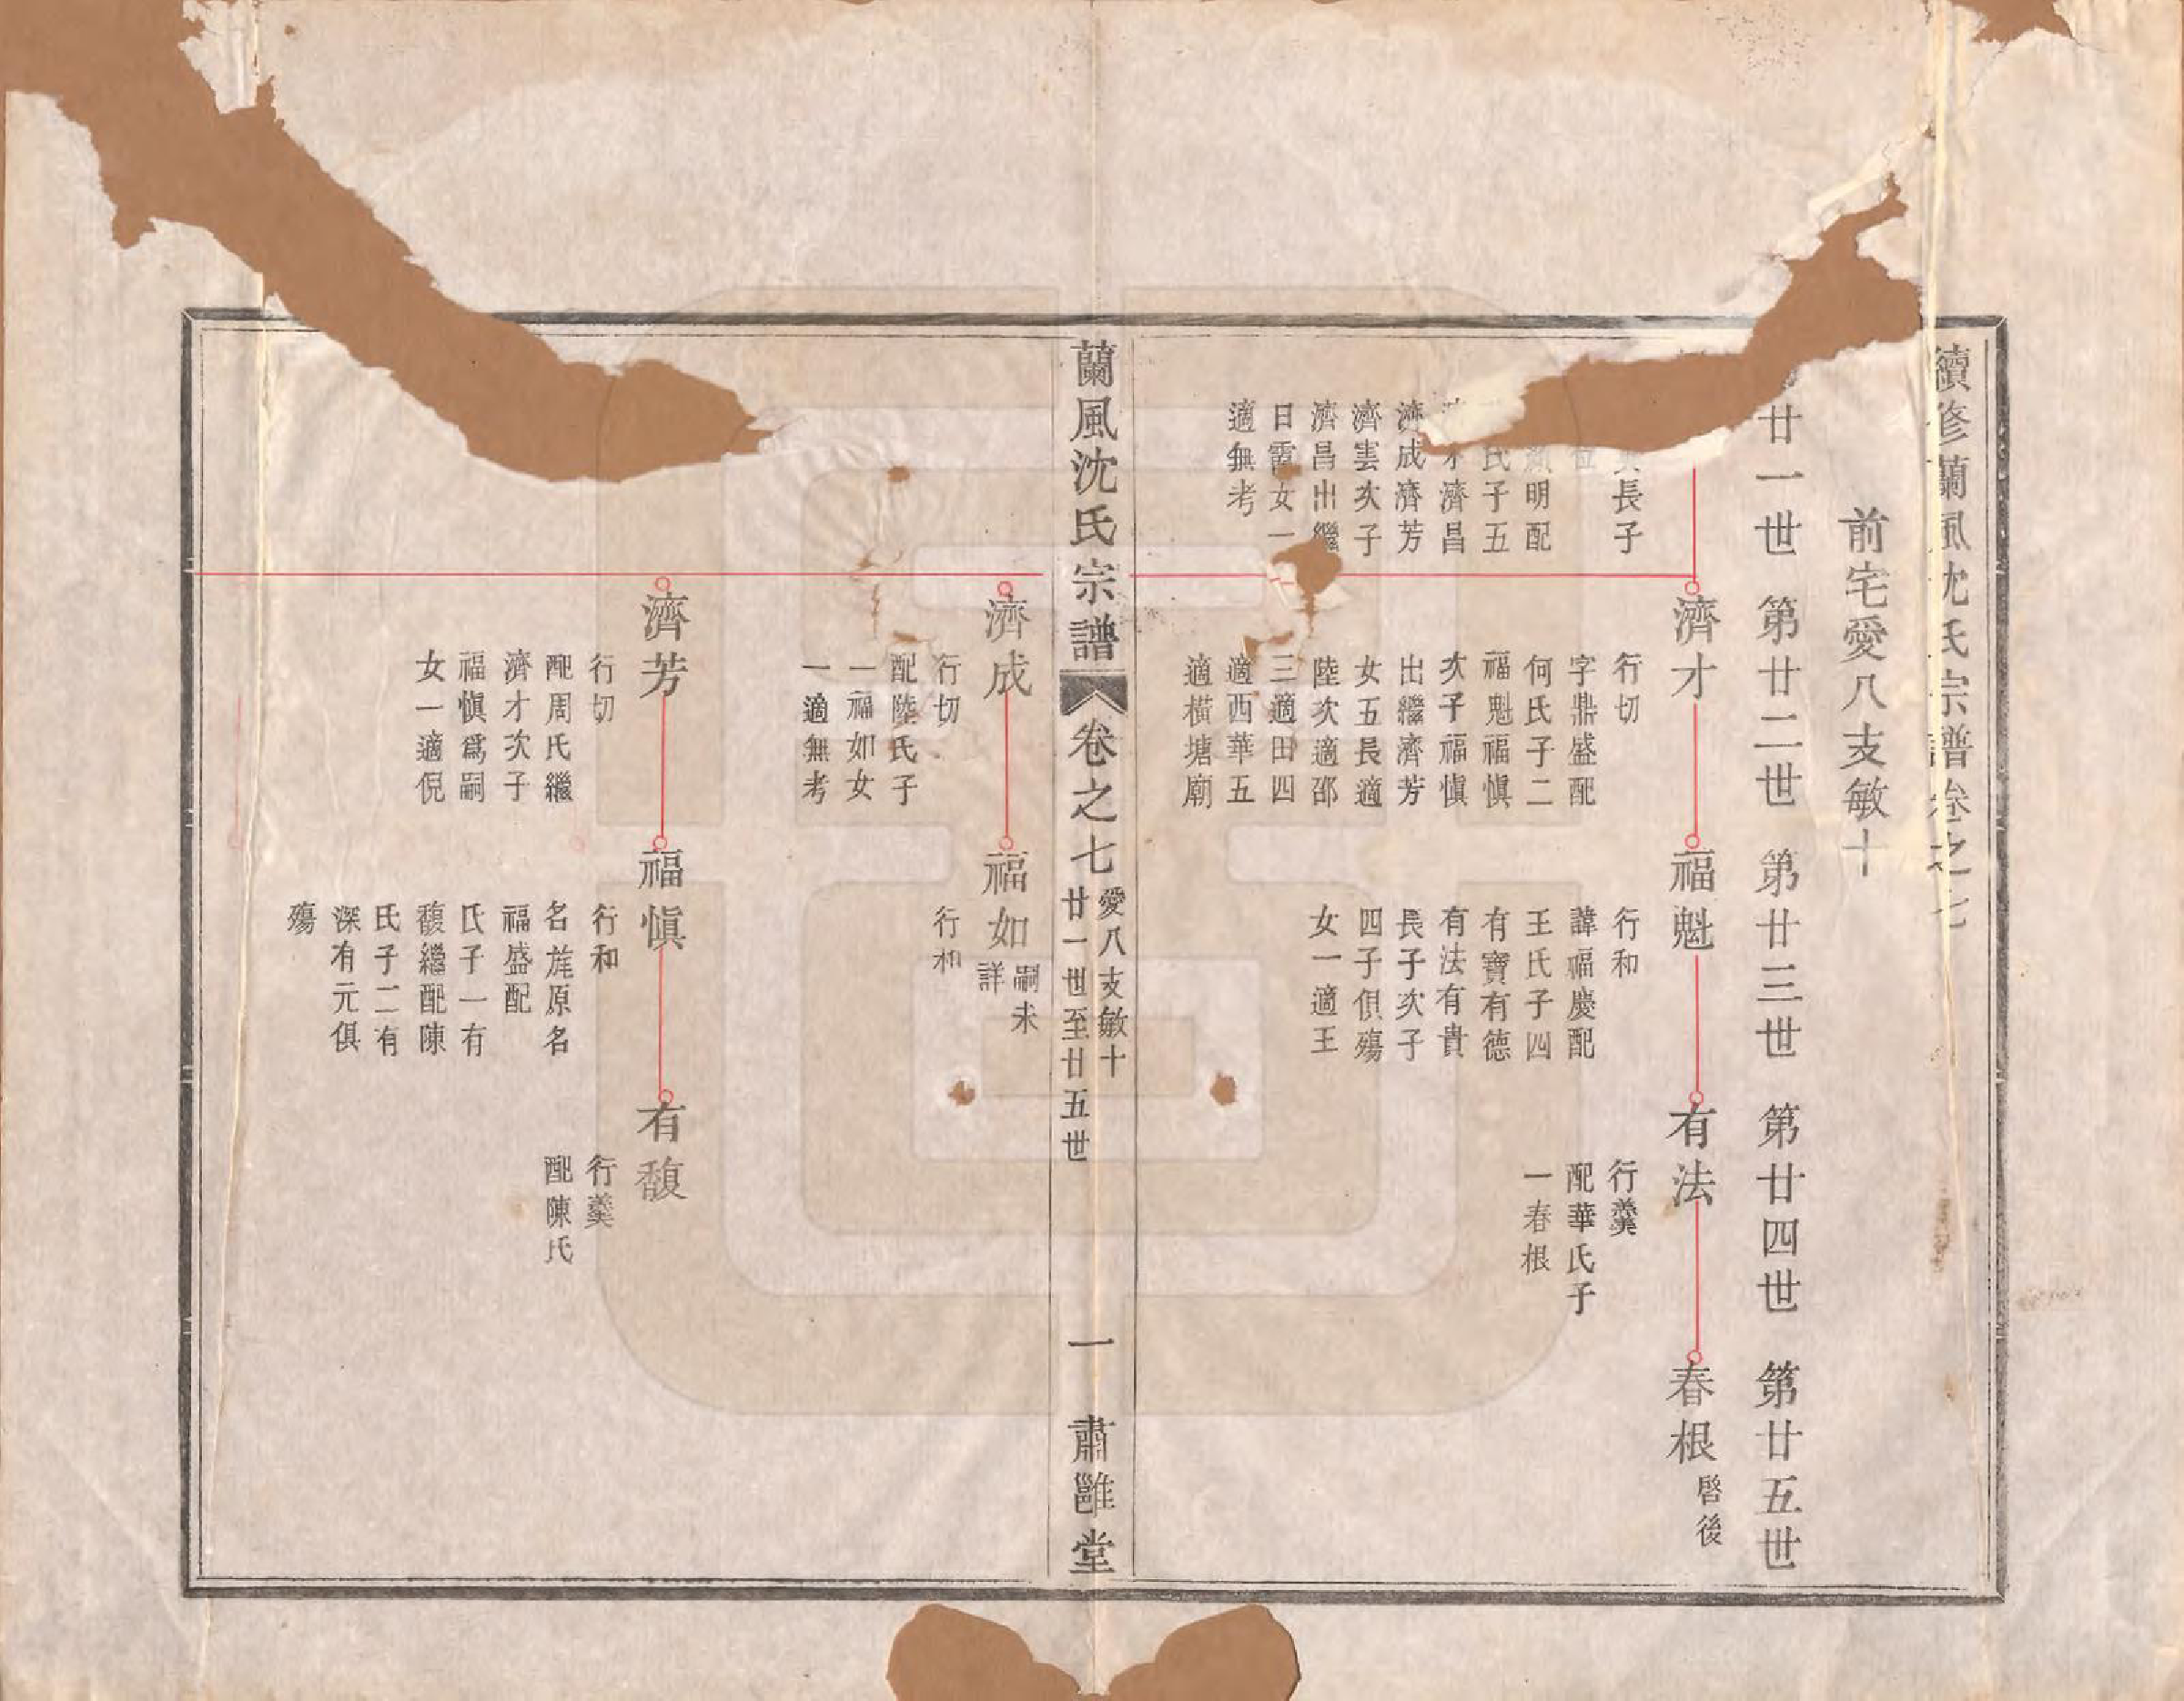 續修蘭風沈氏宗譜卷之七
前宅愛八支敏十
廿一世　第廿二世　第廿三世　第廿四世　第廿五世
長子
明配
氏子五
才濟昌
濟成濟芳
濟雲次子
濟昌出繼
日雷女一
適無考
濟才
行切
字鼎盛配
何氏子二
福魁福愼
次子福愼
出繼濟芳
女五長適
陸次適邵
三適田四
適西華五
適橫塘廟
福魁
行和
諱福慶配
王氏子四
有寶有德
有法有貴
長子次子
四子俱殤
女一適王
有法
行羹
配華氏子
一春根
春根
啓後
蘭風沈氏宗譜　卷之七
愛八支敏十
廿一世至廿五世
一
肅雝堂
濟成
行切
配陸氏子
一福如女
一適無考
福如
嗣未
詳
行和
濟芳
行切
配周氏繼
濟才次子
福愼爲嗣
女一適倪
福愼
行和
名旌原名
福盛配
氏子一有
馥繼配陳
氏子二有
深有元俱
殤
有馥
行羹
配陳氏